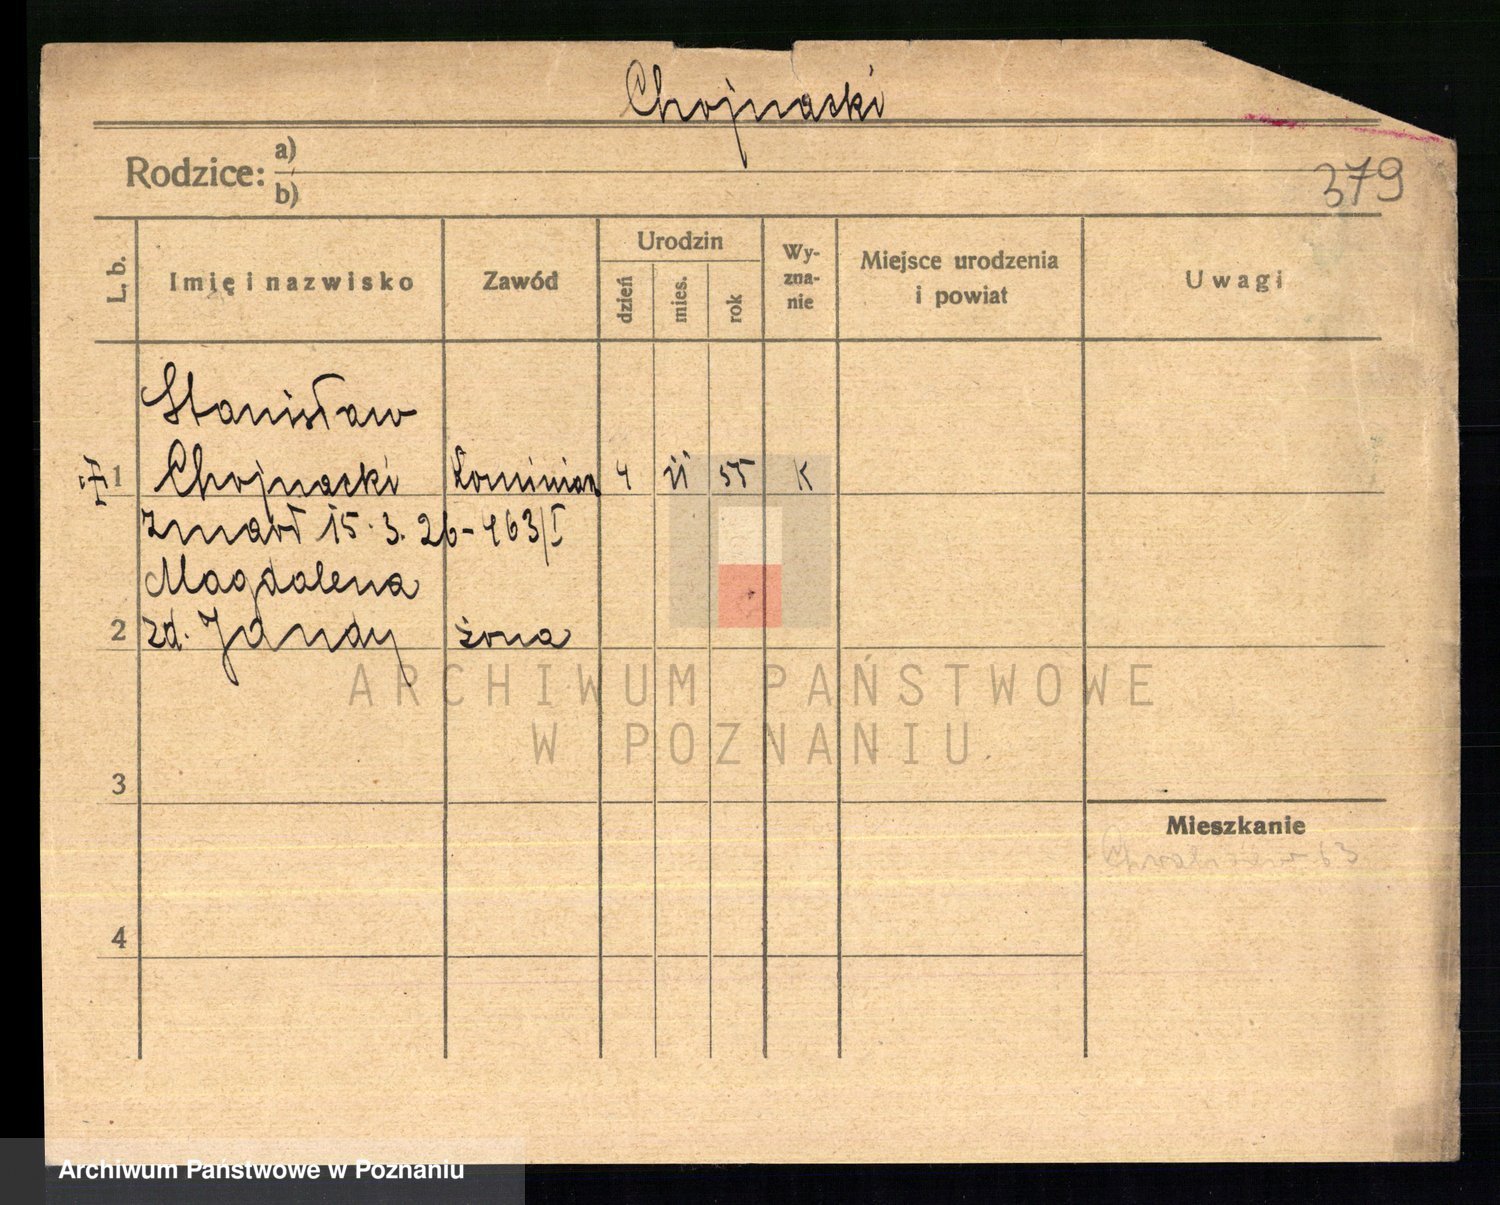 Chojnacki
Rodzice: a)
b)
379
L. b.
Imię i nazwisko
Zawód
Urodzin
dzień
mies.
rok
Wy-
zna-
nie
Miejsce urodzenia
i powiat
Uwagi
Stanisław
1 Chojnacki 4 11 55 K
zmarł 15.3.26-463/I
Magdalena
2 zd. Jandy żona
ARCHIWUM PAŃSTWOWE
W POZNANIU
3
Mieszkanie
63
4
Archiwum Państwowe w Poznaniu